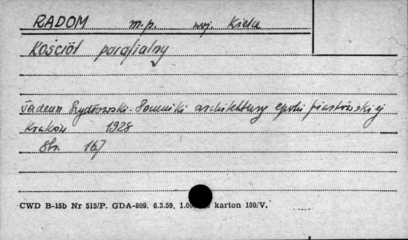 RADOM m.p. woj. Kielce
Kościół parafialny
Tadeusz Szydłowski: Pomniki architektury epoki piastowskiej
Kraków 1928
Str. 167
CWD B-15b Nr 515/P. GDA-809. 6.3.59, 1.00 karton 180/V.